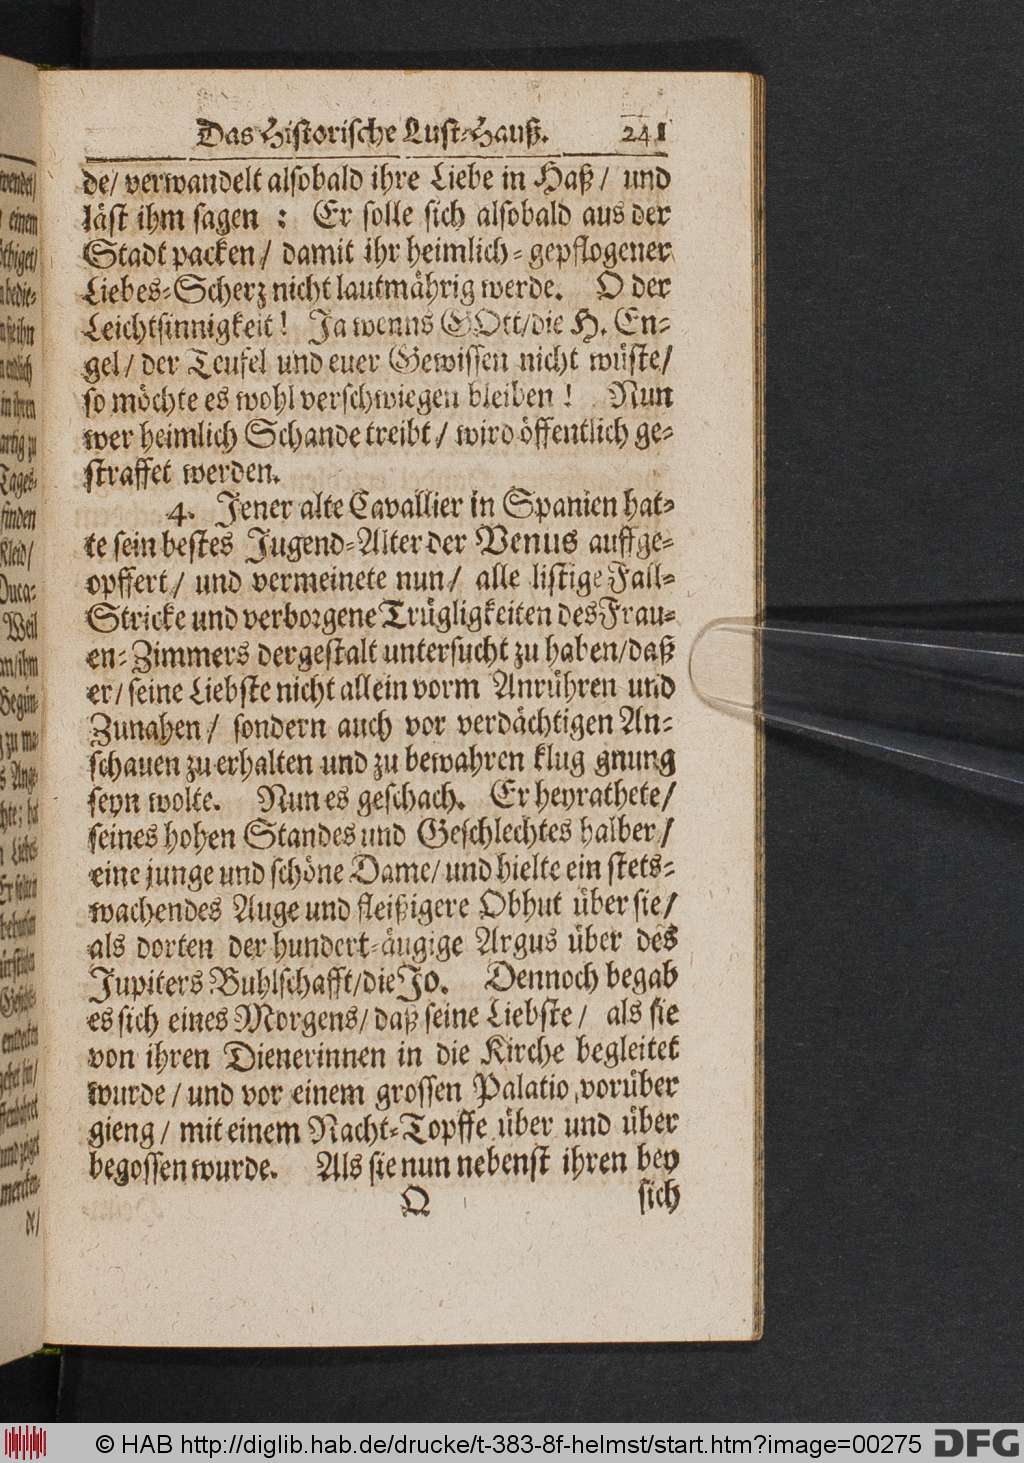 Das Historische Lust-Hauß. 241
de/ verwandelt alsobald ihre Liebe in Haß/ und
läst ihm sagen : Er solle sich alsobald aus der
Stadt packen/ damit ihr heimlich-gepflogener
Liebes-Scherz nicht lautmährig werde. O der
Leichtsinnigkeit! Ja wenns GOtt/die H. En-
gel/ der Teufel und euer Gewissen nicht wüste/
so möchte es wohl verschwiegen bleiben! Nun
wer heimlich Schande treibt/ wird öffentlich ge-
straffet werden.
4. Jener alte Cavallier in Spanien hat-
te sein bestes Jugend-Alter der Venus auffge-
opffert/ und vermeinete nun/ alle listige Fall-
Stricke und verborgene Trügligkeiten des Frau-
en-Zimmers dergestalt untersucht zu haben/daß
er/ seine Liebste nicht allein vorm Anrühren und
Zunahen/ sondern auch vor verdächtigen An-
schauen zu erhalten und zu bewahren klug gnung
seyn wolte. Nun es geschach. Er heyrathete/
seines hohen Standes und Geschlechtes halber/
eine junge und schöne Dame/ und hielte ein stets-
wachendes Auge und fleißigere Obhut über sie/
als dorten der hundert-äugige Argus über des
Jupiters Buhlschafft/die Jo. Dennoch begab
es sich eines Morgens/ daß seine Liebste/ als sie
von ihren Dienerinnen in die Kirche begleitet
wurde/ und vor einem grossen Palatio, vorüber
gieng/ mit einem Nacht-Topffe über und über
begossen wurde. Als sie nun nebenst ihren bey
Q sich
wendet/
einen
finden
Kleid/
Duca-
Weil
de/
© HAB http://diglib.hab.de/drucke/t-383-8f-helmst/start.htm?image=00275
DFG